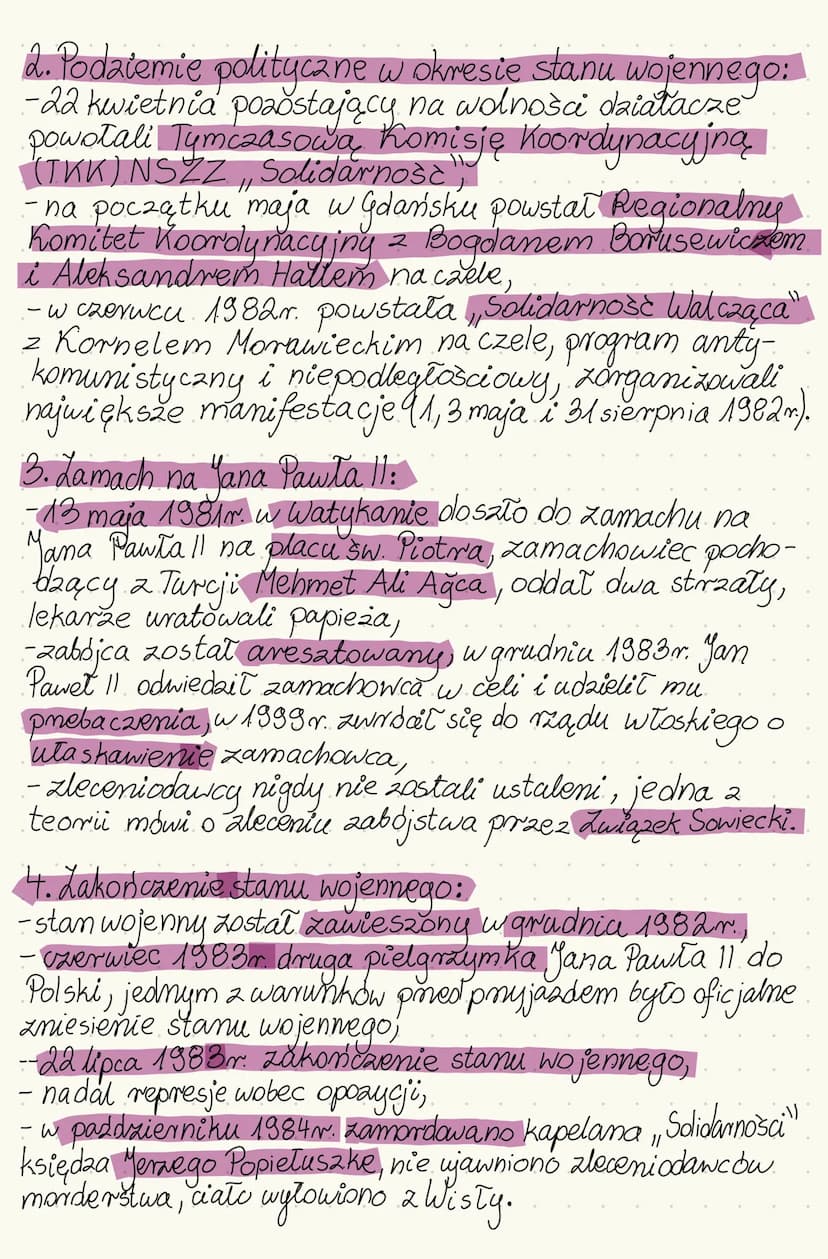 2. Podziemie polityczne w okresie stanu wojennego:
-22 kwietnia pozostający na wolności działacze
powołali Tymczasową Komisję Koordynacyjną
(TKK) NSZZ „Solidarność”,
-na początku maja w Gdańsku powstał Regionalny
Komitet Koordynacyjny z Bogdanem Borusewiczem
i Aleksandrem Hallem na czele,
-w czerwcu 1982r. powstała „Solidarność Walcząca”
z Kornelem Morawieckim na czele, program anty-
komunistyczny i niepodległościowy, zorganizowali
największe manifestacje (1, 3 maja i 31 sierpnia 1982r.).
3. Zamach na Jana Pawła II:
-13 maja 1981r. w Watykanie doszło do zamachu na
Jana Pawła II na placu św. Piotra, zamachowiec pocho-
dzący z Turcji Mehmet Ali Ağca, oddał dwa strzały,
lekarze uratowali papieża,
-zabójca został aresztowany, w grudniu 1983r. Jan
Paweł II odwiedził zamachowca w celi i udzielił mu
przebaczenia, w 1999r. zwrócił się do rządu włoskiego o
ułaskawienie zamachowca,
- zleceniodawcy nigdy nie zostali ustaleni, jedna z
teorii mówi o zleceniu zabójstwa przez Związek Sowiecki.
4. Zakończenie stanu wojennego:
-stan wojenny został zawieszony w grudnia 1982r.,
- czerwiec 1983r. druga pielgrzymka Jana Pawła II do
Polski, jednym z warunków przed przyjazdem było oficjalne
zniesienie stanu wojennego,
--22 lipca 1983r. zakończenie stanu wojennego,
- nadal represje wobec opozycji,
- w październiku 1984r. zamordowano kapelana „Solidarności”
księdza Jerzego Popiełuszkę, nie ujawniono zleceniodawców
morderstwa, ciało wyłowiono z Wisły.